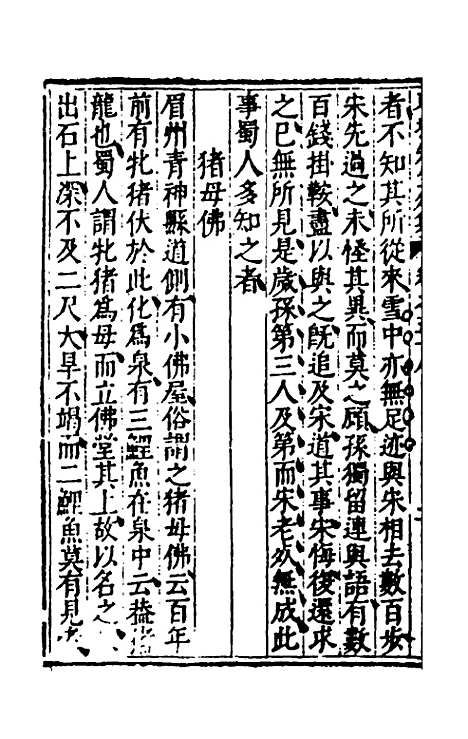 者不知其所從來雪中亦無足迹與宋相去數百步
宋先過之未怪其異而莫之顧孫獨留連與語有數
百錢掛鞍盡以與之既追及宋道其事宋悔復還求
之已無所見是歲孫第三人及第而宋老於無成此
事蜀人多知之者
猪母佛
眉州青神縣道側有小佛屋俗謂之猪母佛云百年
前有牝猪伏於此化為泉有三鯉魚在泉中云
龍也蜀人謂牝猪為母而立佛堂其上故以名之
出石上深不及二尺大旱不竭而二鯉魚莫有見